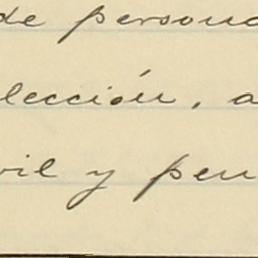 de persona
lección, a
vil y pen